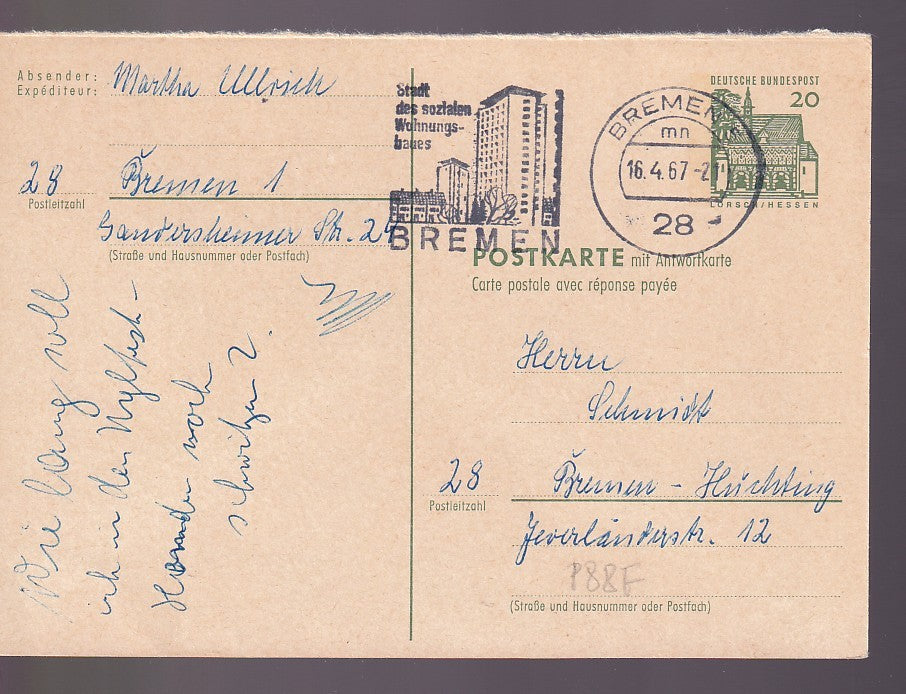 Absender:
Expéditeur:
Martha Ullrich
28 Bremen 1
Postleitzahl
Gandersheimer Str. 24
(Straße und Hausnummer oder Postfach)
Wie lang soll
ich in den Nylfest-
Hemden noch
schwitzen?
Stadt
des sozialen
Wohnungs-
baues
BREMEN
BREMEN 1
mn
16.4.67-21
28
DEUTSCHE BUNDESPOST
20
LORSCH/HESSEN
POSTKARTE mit Antwortkarte
Carte postale avec réponse payée
Herrn
Schmidt
28 Bremen - Huchting
Postleitzahl
Jeverländerstr. 12
P88F
(Straße und Hausnummer oder Postfach)